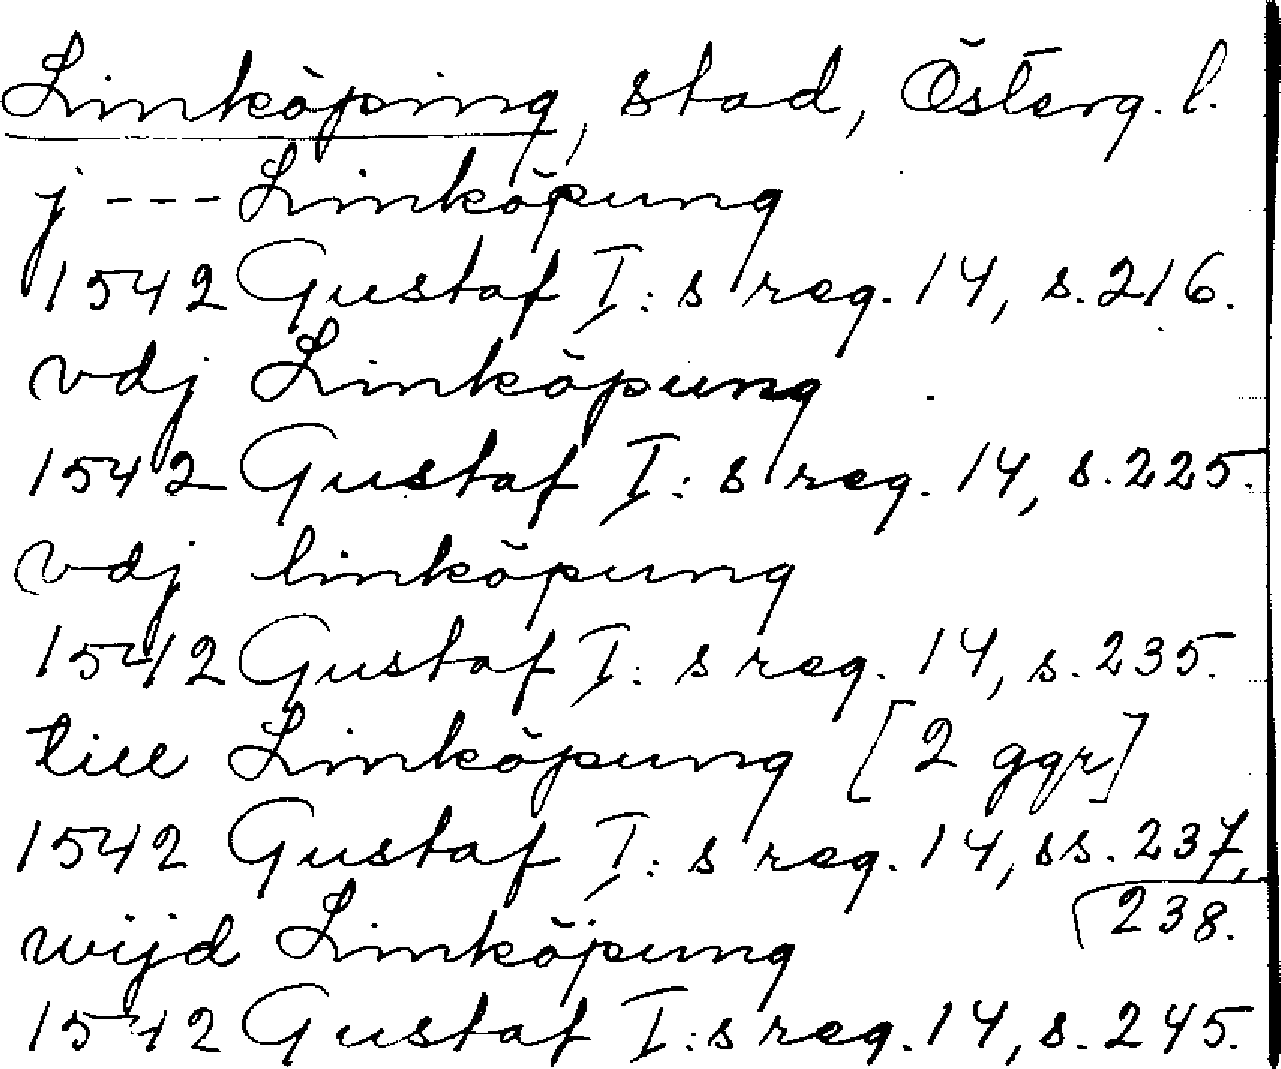 Linköping, stad, Österg. l.
j --- Linköpung
1542 Gustaf I:s reg. 14, s. 216.
vdj Linköpung
1542 Gustaf I:s reg. 14, s. 225.
vdj linköpung
1542 Gustaf I:s reg. 14, s. 235.
till Linköpung [2 ggr]
1542 Gustaf I:s reg. 14, ss. 237,
238.
wijd Linköpung
1542 Gustaf I:s reg. 14, s. 245.